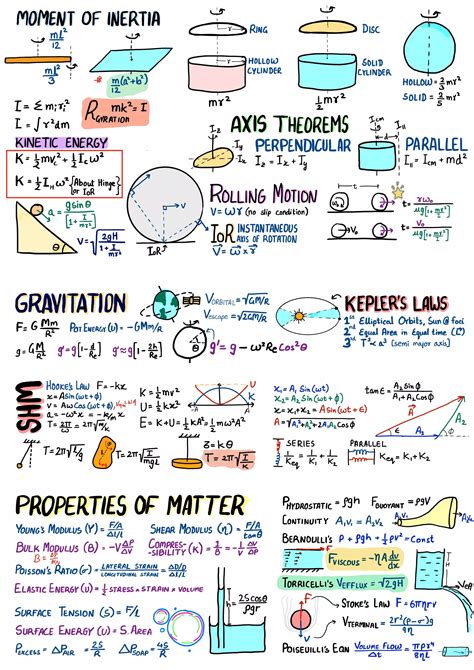 MOMENT OF INERTIA
ml²/12
ml²/3
m(a²+b²)/12
RING
HOLLOW CYLINDER
mr²
DISC
SOLID CYLINDER
½mr²
HOLLOW = 2/3 mr²
SOLID = 2/5 mr²
I = Σ mᵢrᵢ²
I = ∫ r²dm
R GYRATION mk² = I
AXIS THEOREMS
PERPENDICULAR
Iz = Ix + Iy
Iz
Iy
Ix
PARALLEL
I = Icm + md²
Icm
KINETIC ENERGY
K = ½mv² + ½Icω²
K = ½IHω² {About Hinge/ or IOR}
a = gSinθ/[1+I/mr²]
θ
V = √(2gH/(1+I/mr²))
IOR
V
ROLLING MOTION
V = ωr (no slip condition)
IOR INSTANTANEOUS AXIS OF ROTATION
V = ω × r
t
t = rω₀/μg[1+mr²/I]
t = v₀/μg[1+I/mr²]
GRAVITATION
F = G Mm/R²
POT ENERGY (U) = -GMm/R
g = GM/R²
g' = g[1-d/Re]
g' ≈ g[1-2h/Re]
VORBITAL = √GM/R
Vescape = √2GM/R
θ
g' = g - ω²ReCos²θ
KEPLER'S LAWS
1st Elliptical Orbits, Sun @ foci
2nd Equal Area in Equal time
3rd T² ∝ a³ (semi major axis)
SHM
HOOKE'S LAW F = -kx
x = ASin(ωt+φ)
v = Aω Cos(ωt+φ)
a = -ω²x = -k/m x
T = 2π/ω = 2π√m/k
K = ½mv²
U = ½kx²
E = K+U = ½kA² = ½mω²A²
U
K
-A
A
T = 2π√l/g
T = 2π√I/mgL
τ = kθ
T = 2π√I/K
x₁ = A₁ Sin(ωt)
x₂ = A₂ Sin(ωt+φ)
x = x₁+x₂ = ASin(ωt+ε)
A = √A₁²+A₂²+2A₁A₂Cosφ
tanε = A₂Sinφ/A₁+A₂Cosφ
A
A₂
A₁
ε
φ
SERIES
1/Keq = 1/K₁ + 1/K₂
PARALLEL
Keq = K₁ + K₂
PROPERTIES OF MATTER
YOUNG'S MODULUS (Y) = F/A / Δl/l
SHEAR MODULUS (η) = F/A / tanθ
BULK MODULUS (B) = -V ΔP/ΔV
COMPRESSIBILITY (K) = 1/B = -1/V ΔV/ΔP
POISSON'S RATIO (σ) = LATERAL STRAIN/LONGITUDINAL STRAIN = ΔD/D / Δl/l
ELASTIC ENERGY (U) = ½ STRESS × STRAIN × VOLUME
SURFACE TENSION (S) = F/L
SURFACE ENERGY (U) = S.AREA
PEXCESS = ΔPAIR = 2S/R
ΔPSOAP = 4S/R
h = 2SCosθ/ρgr
PHYDROSTATIC = ρgh
FBUOYANT = ρgV
CONTINUITY A₁V₁ = A₂V₂
BERNOULLI'S P + ρgh + ½ρv² = Const
FVISCOUS = -ηA dv/dx
TORRICELLI'S VEFFLUX = √2gH
STOKE'S LAW F = 6πηrv
VTERMINAL = 2r²(ρ-σ)g/9η
POISEUILLI'S EQN VOLUME FLOW/Δt = πpr⁴/8ηL